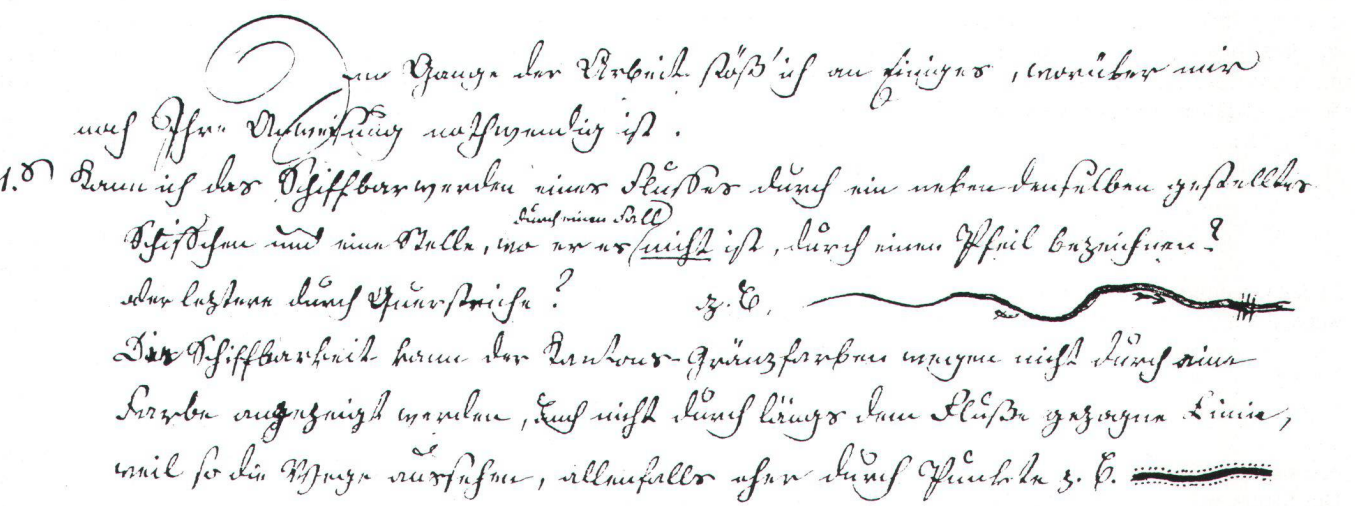 Im Gange der Arbeit stöß' ich an Einiges, worüber mir
noch Ihre Anweisung nothwendig ist.
1. Kann ich das Schiffbarwerden eines Flusses durch ein neben denselben gestelltes
durch einen Fall
Schiffchen und eine Stelle, wo er es nicht ist, durch einen Pfeil bezeichnen?
oder letztere durch Querstriche? z. B.
Die Schiffbarkeit kann der Kantons-Gränzfarben wegen nicht durch eine
Farbe angezeigt werden, auch nicht durch längs dem Fluße gezogne Linie,
weil so die Wege aussehen, allenfalls eher durch Punkte z. B.